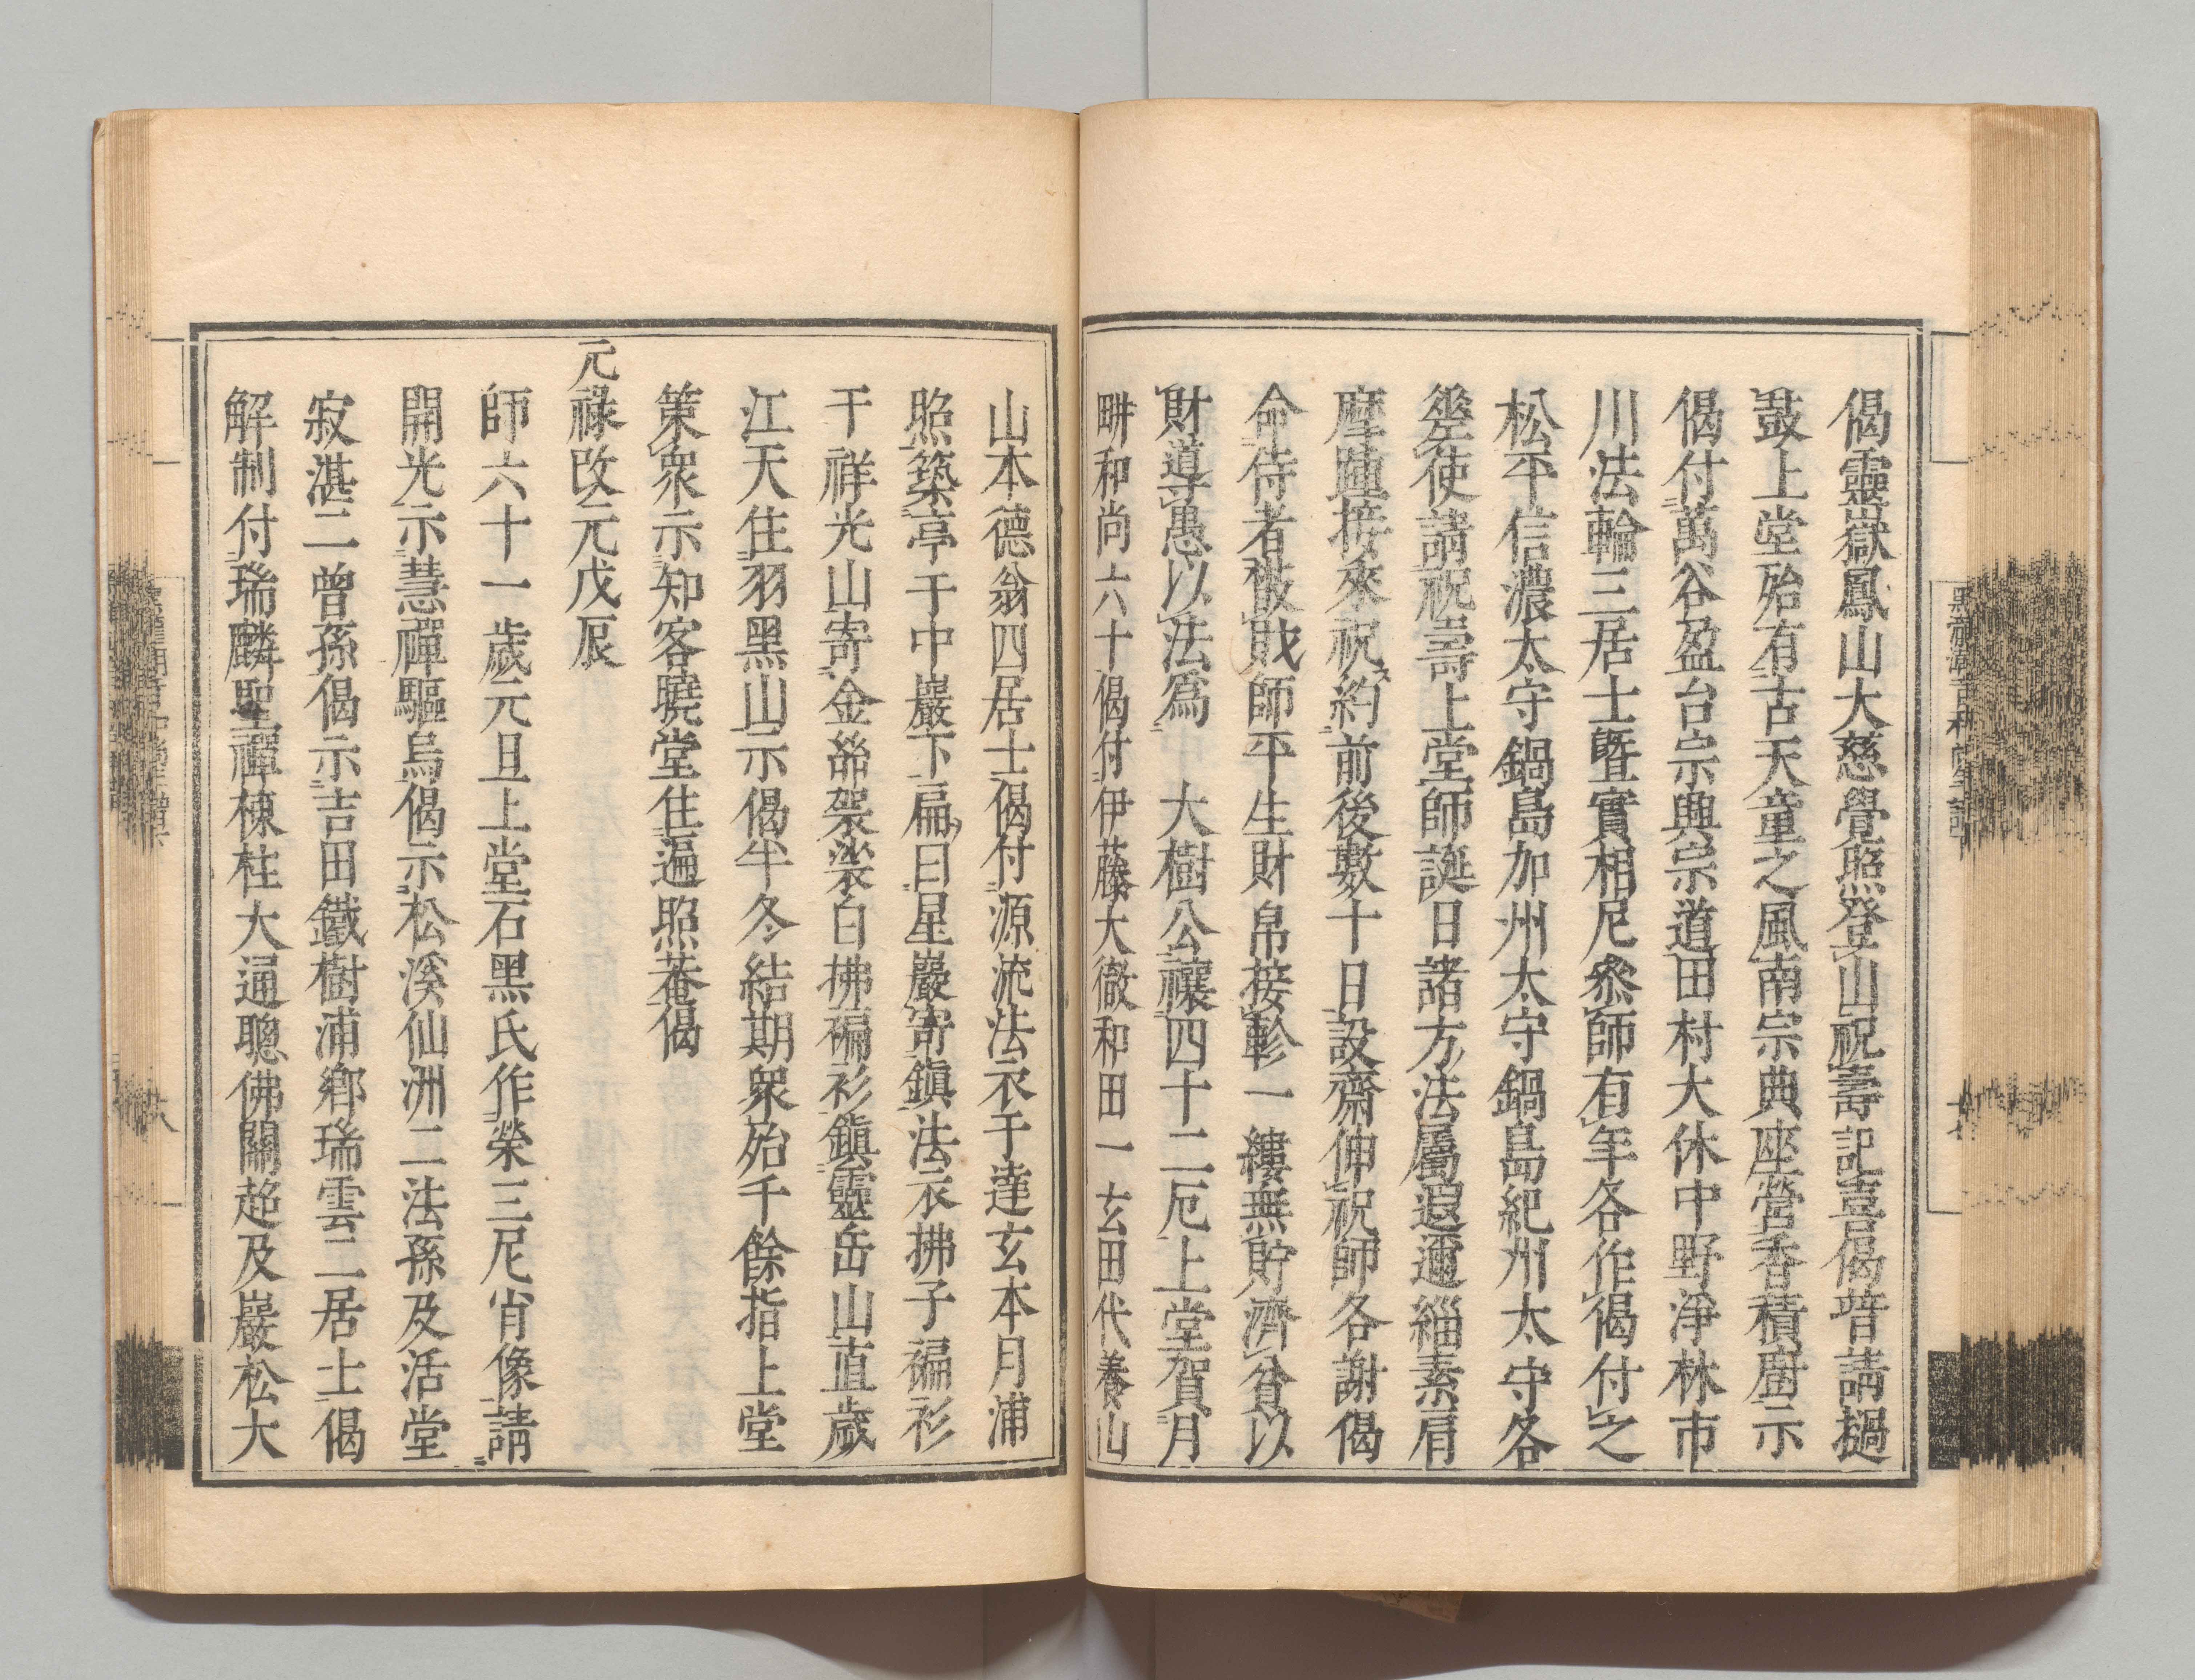 偈靈嶽鳳山大慈覺照登山祝壽記喜偈普請撾
鼓上堂殆有古天童之風南宗典座營香積廚示
偈付萬谷盈台宗興宗道田村大休中野淨林市
川法輪三居士暨實相尼叅師有年各作偈付之
松平信濃太守鍋島加州太守鍋島紀州太守各
差使請祝壽上堂師誕日諸方法屬遐邇緇素肩
摩踵接來祝約前後數十日設齋伸祝師各謝偈
命侍者散財師平生財帛接軫一縷無貯濟貧以
財導愚以法爲 大樹公禳四十二厄上堂賀月
畊和尚六十偈付伊藤大徹和田一玄田代養山
山本德翁四居士偈付源流法衣于達玄本月浦
照築亭于中巖下扁曰星巖寄鎭法衣拂子褊衫
于祥光山寄金㡀袈裟白拂褊衫鎭靈岳山直歲
江天住羽黑山示偈半冬結期衆殆千餘指上堂
策衆示知客曉堂住遍照菴偈
元祿改元戊辰
師六十一歲元旦上堂石黑氏作榮三尼肖像請
開光示慧禪驅烏偈示松溪仙洲二法孫及活堂
寂湛二曾孫偈示吉田鐵樹浦鄉瑞雲二居士偈
解制付瑞麟聖禪棟柱大通聰佛關超及巖松大